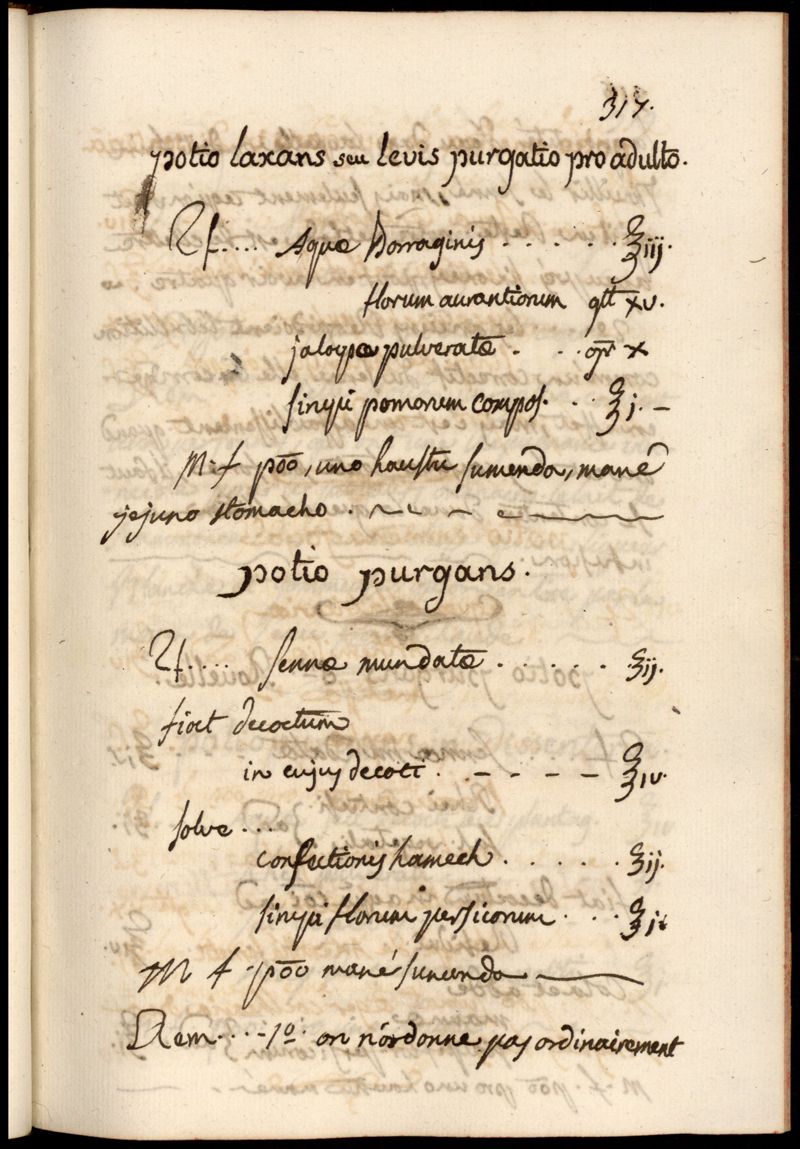 317.
potio laxans seu levis purgatio pro adulto.
♃.... Aquæ Borraginis . . . . . . ℥iij.
florum aurantiorum gtt xv.
jalapæ pulveratæ . . . gr x
sirupi pomorum compos. . . ℥j. –
M. f. p̄oō, uno haustu sumenda, mane
jejuno stomacho .
potio purgans.
♃.... sennæ mundatæ . . . . . . ʒij.
fiat decoctum
in cujus decoct. . – – – – ℥iv.
solve ...
confectionis hamech . . . . . . ʒij.
sirupi florum persicorum . . . ℥j
M f. p̄oō mané sumenda
Rem... -1º. on n'ordonne pas ordinairement